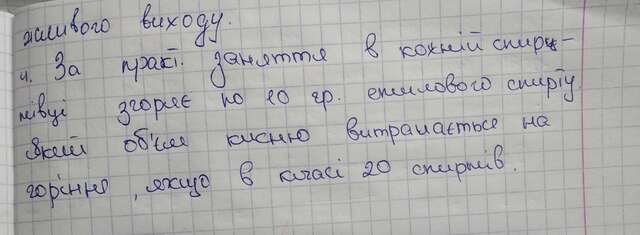 жливого виходу.
4. За практ. заняття в кожній спирт-
півці згоряє по 10 гр. етилового спирту.
Який об'єм кисню витрачається на
горіння, якщо в класі 20 спиртів.